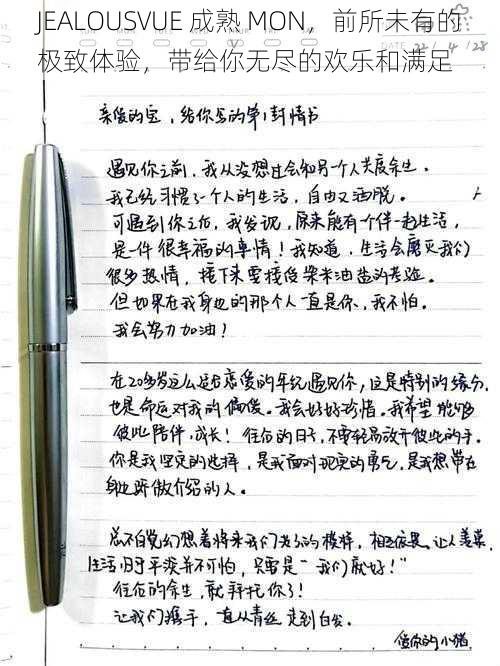 JEALOUSVUE 成熟 MON，前所未有的
极致体验，带给你无尽的欢乐和满足
DATE 22 / 4 / 28
亲爱的宝，给你写的第1封情书
遇见你之前，我从没想过会和另一个人共度余生。
我已经习惯了一个人的生活，自由又洒脱。
可遇到你之后，我发现，原来能有个伴一起生活，
是一件很幸福的事情！我知道，生活会磨灭我们
很多热情，接下来要接受柴米油盐的考验。
但如果在我身边的那个人一直是你，我不怕。
我会努力加油！
在20多岁这么适合恋爱的年纪遇见你，这是特别的缘分，
也是命运对我的偏爱。我会好好珍惜。我希望能够
彼此陪伴，成长！往后的日子，不要轻易放开彼此的手。
你是我坚定的选择，是我面对现实的勇气，是我想带在
身边骄傲介绍的人。
总不自觉幻想着将来我们老了的模样，相互依畏、让人羡慕，
生活归于平淡并不可怕，只要是“我们就好！”
往后的余生，就拜托你了！
让我们携手，直从青丝走到白发。
爱你的小猪